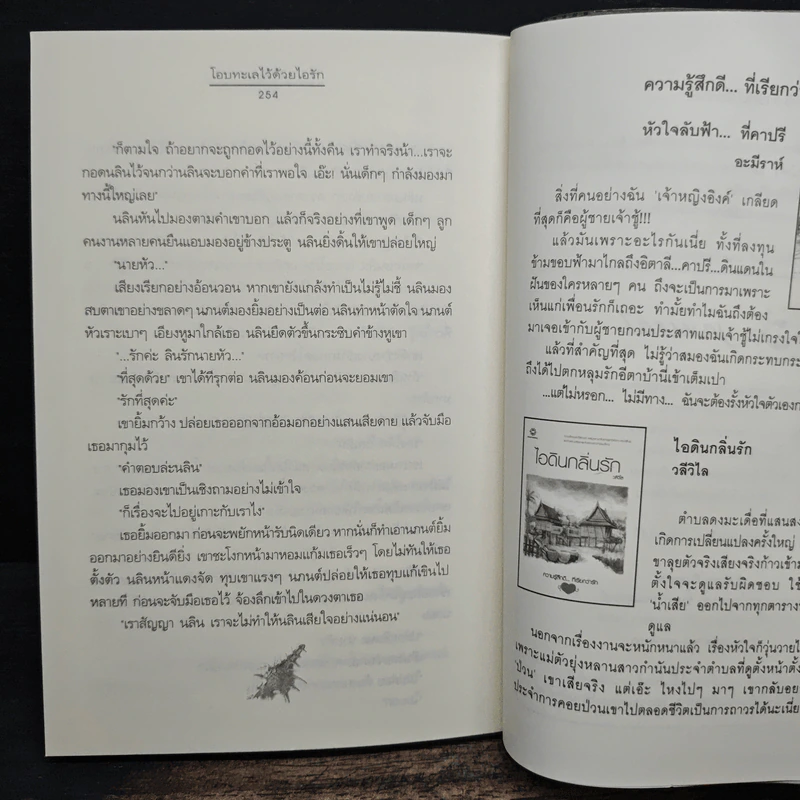 โอบทะเลไว้ด้วยไอรัก
254
"ก็ตามใจ ถ้าอยากจะถูกกอดไว้อย่างนี้ทั้งคืน เราทำจริงน้า...เราจะ
กอดนลินไว้จนกว่านลินจะบอกคำที่เราพอใจ เอ๊ะ! นั่นเด็กๆ กำลังมองมา
ทางนี้ใหญ่เลย"
นลินหันไปมองตามคำเขาบอก แล้วก็จริงอย่างที่เขาพูด เด็กๆ ลูก
คนงานหลายคนยืนแอบมองอยู่ข้างประตู นลินยิ่งดิ้นให้เขาปล่อยใหญ่
"นายหัว..."
เสียงเรียกอย่างอ้อนวอน หากเขายังแกล้งทำเป็นไม่รู้ไม่ชี้ นลินมอง
สบตาเขาอย่างขลาดๆ นภนต์มองยิ้มอย่างเป็นต่อ นลินทำหน้าตัดใจ นภนต์
หัวเราะเบาๆ เอียงหูมาใกล้เธอ นลินยืดตัวขึ้นกระซิบคำข้างหูเขา
"...รักค่ะ ลินรักนายหัว..."
"ที่สุดด้วย" เขาได้ทีรุกต่อ นลินมองค้อนก่อนจะยอมเขา
"รักที่สุดค่ะ"
เขายิ้มกว้าง ปล่อยเธอออกจากอ้อมอกอย่างแสนเสียดาย แล้วจับมือ
เธอมากุมไว้
"คำตอบล่ะนลิน"
เธอมองเขาเป็นเชิงถามอย่างไม่เข้าใจ
"ก็เรื่องจะไปอยู่เกาะกับเราไง"
เธอยิ้มออกมา ก่อนจะพยักหน้ารับนิดเดียว หากนั่นก็ทำเอานภนต์ยิ้ม
ออกมาอย่างยินดียิ่ง เขาชะโงกหน้ามาหอมแก้มเธอเร็วๆ โดยไม่ทันให้เธอ
ตั้งตัว นลินหน้าแดงจัด ทุบเขาแรงๆ นภนต์ปล่อยให้เธอทุบแก้เขินไป
หลายที ก่อนจะจับมือเธอไว้ จ้องลึกเข้าไปในดวงตาเธอ
"เราสัญญา นลิน เราจะไม่ทำให้นลินเสียใจอย่างแน่นอน"
ความรู้สึกดี... ที่เรียกว่
หัวใจลับฟ้า... ที่คาปรี
อะมีราห์
สิ่งที่คนอย่างฉัน 'เจ้าหญิงอิงค์' เกลียด
ที่สุดก็คือผู้ชายเจ้าชู้!!!
แล้วมันเพราะอะไรกันเนี่ย ทั้งที่ลงทุน
ข้ามขอบฟ้ามาไกลถึงอิตาลี...คาปรี...ดินแดนใน
ฝันของใครหลายๆ คน ถึงจะเป็นการมาเพราะ
เห็นแก่เพื่อนรักก็เถอะ ทำมั้ยทำไมฉันถึงต้อง
มาเจอเข้ากับผู้ชายกวนประสาทแถมเจ้าชู้ไม่เกรงใจใ
แล้วที่สำคัญที่สุด ไม่รู้ว่าสมองฉันเกิดกระทบกระ
ถึงได้ไปตกหลุมรักอีตาบ้านี่เข้าเต็มเปา
...แต่ไม่หรอก... ไม่มีทาง... ฉันจะต้องรั้งหัวใจตัวเองก
ไอดินกลิ่นรัก
วลีวิไล
ไอดินกลิ่นรัก
ความรู้สึกดี... ที่เรียกว่ารัก
ตำบลดงมะเดื่อที่แสนสง
เกิดการเปลี่ยนแปลงครั้งใหญ่
ขาลุยตัวจริงเสียงจริงก้าวเข้าม
ตั้งใจจะดูแลรับผิดชอบ ใช้
'น้ำเสีย' ออกไปจากทุกตารางนิ
ดูแล
นอกจากเรื่องงานจะหนักหนาแล้ว เรื่องหัวใจก็วุ่นวายไ
เพราะแม่ตัวยุ่งหลานสาวกำนันประจำตำบลที่ดูตั้งหน้าตั้ง
'ป่วน' เขาเสียจริง แต่เอ๊ะ ไหงไปๆ มาๆ เขากลับอย
ประจำการคอยป่วนเขาไปตลอดชีวิตเป็นการถาวรได้นะเนี่ย